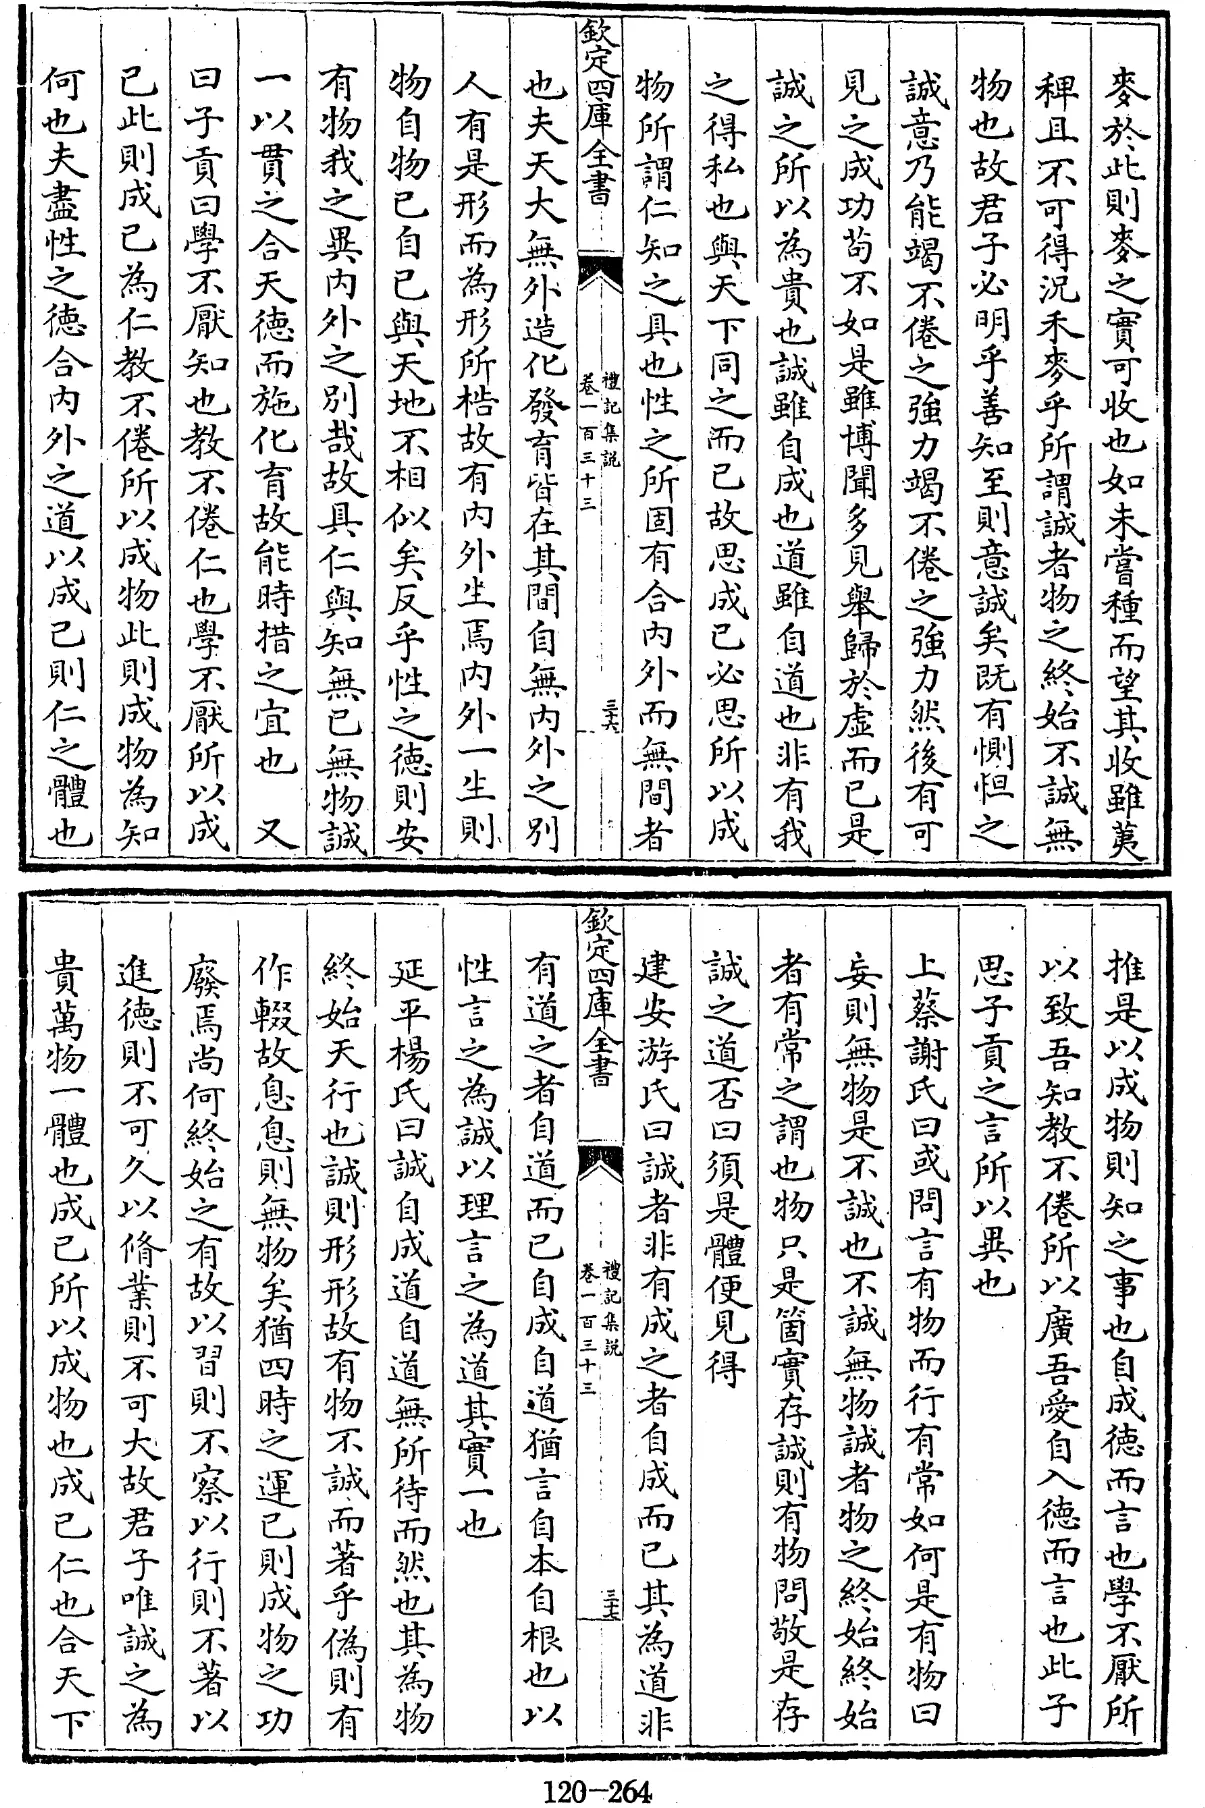 麥於此則麥之實可收也如未嘗種而望其收雖荑
稗且不可得況禾麥乎所謂誠者物之終始不誠無
物也故君子必明乎善知至則意誠矣既有惻怛之
誠意乃能竭不倦之強力竭不倦之強力然後有可
見之成功苟不如是雖博聞多見舉歸於虛而已是
誠之所以為貴也誠雖自成也道雖自道也非有我
之得私也與天下同之而已故思成已必思所以成
物所謂仁知之具也性之所固有合内外而無間者
欽定四庫全書
禮記集説
卷一百三十三
三十六
也夫天大無外造化發育皆在其間自無内外之别
人有是形而為形所梏故有内外生焉内外一生則
物自物已自已與天地不相似矣反乎性之德則安
有物我之異内外之別哉故具仁與知無已無物誠
一以貫之合天德而施化育故能時措之宜也 又
曰子貢曰學不厭知也教不倦仁也學不厭所以成
已此則成已為仁教不倦所以成物此則成物為知
何也夫盡性之德合内外之道以成已則仁之體也
推是以成物則知之事也自成德而言也學不厭所
以致吾知教不倦所以廣吾愛自入德而言也此子
思子貢之言所以異也
上蔡謝氏曰或問言有物而行有常如何是有物曰
妄則無物是不誠也不誠無物誠者物之終始終始
者有常之謂也物只是箇實存誠則有物問敬是存
誠之道否曰須是體便見得
建安游氏曰誠者非有成之者自成而已其為道非
欽定四庫全書
禮記集説
卷一百三十三
三十七
有道之者自道而已自成自道猶言自本自根也以
性言之為誠以理言之為道其實一也
延平楊氏曰誠自成道自道無所待而然也其為物
終始天行也誠則形形故有物不誠而著乎偽則有
作輟故息息則無物矣猶四時之運已則成物之功
廢焉尚何終始之有故以習則不察以行則不著以
進德則不可久以脩業則不可大故君子唯誠之為
貴萬物一體也成已所以成物也成已仁也合天下
120-264